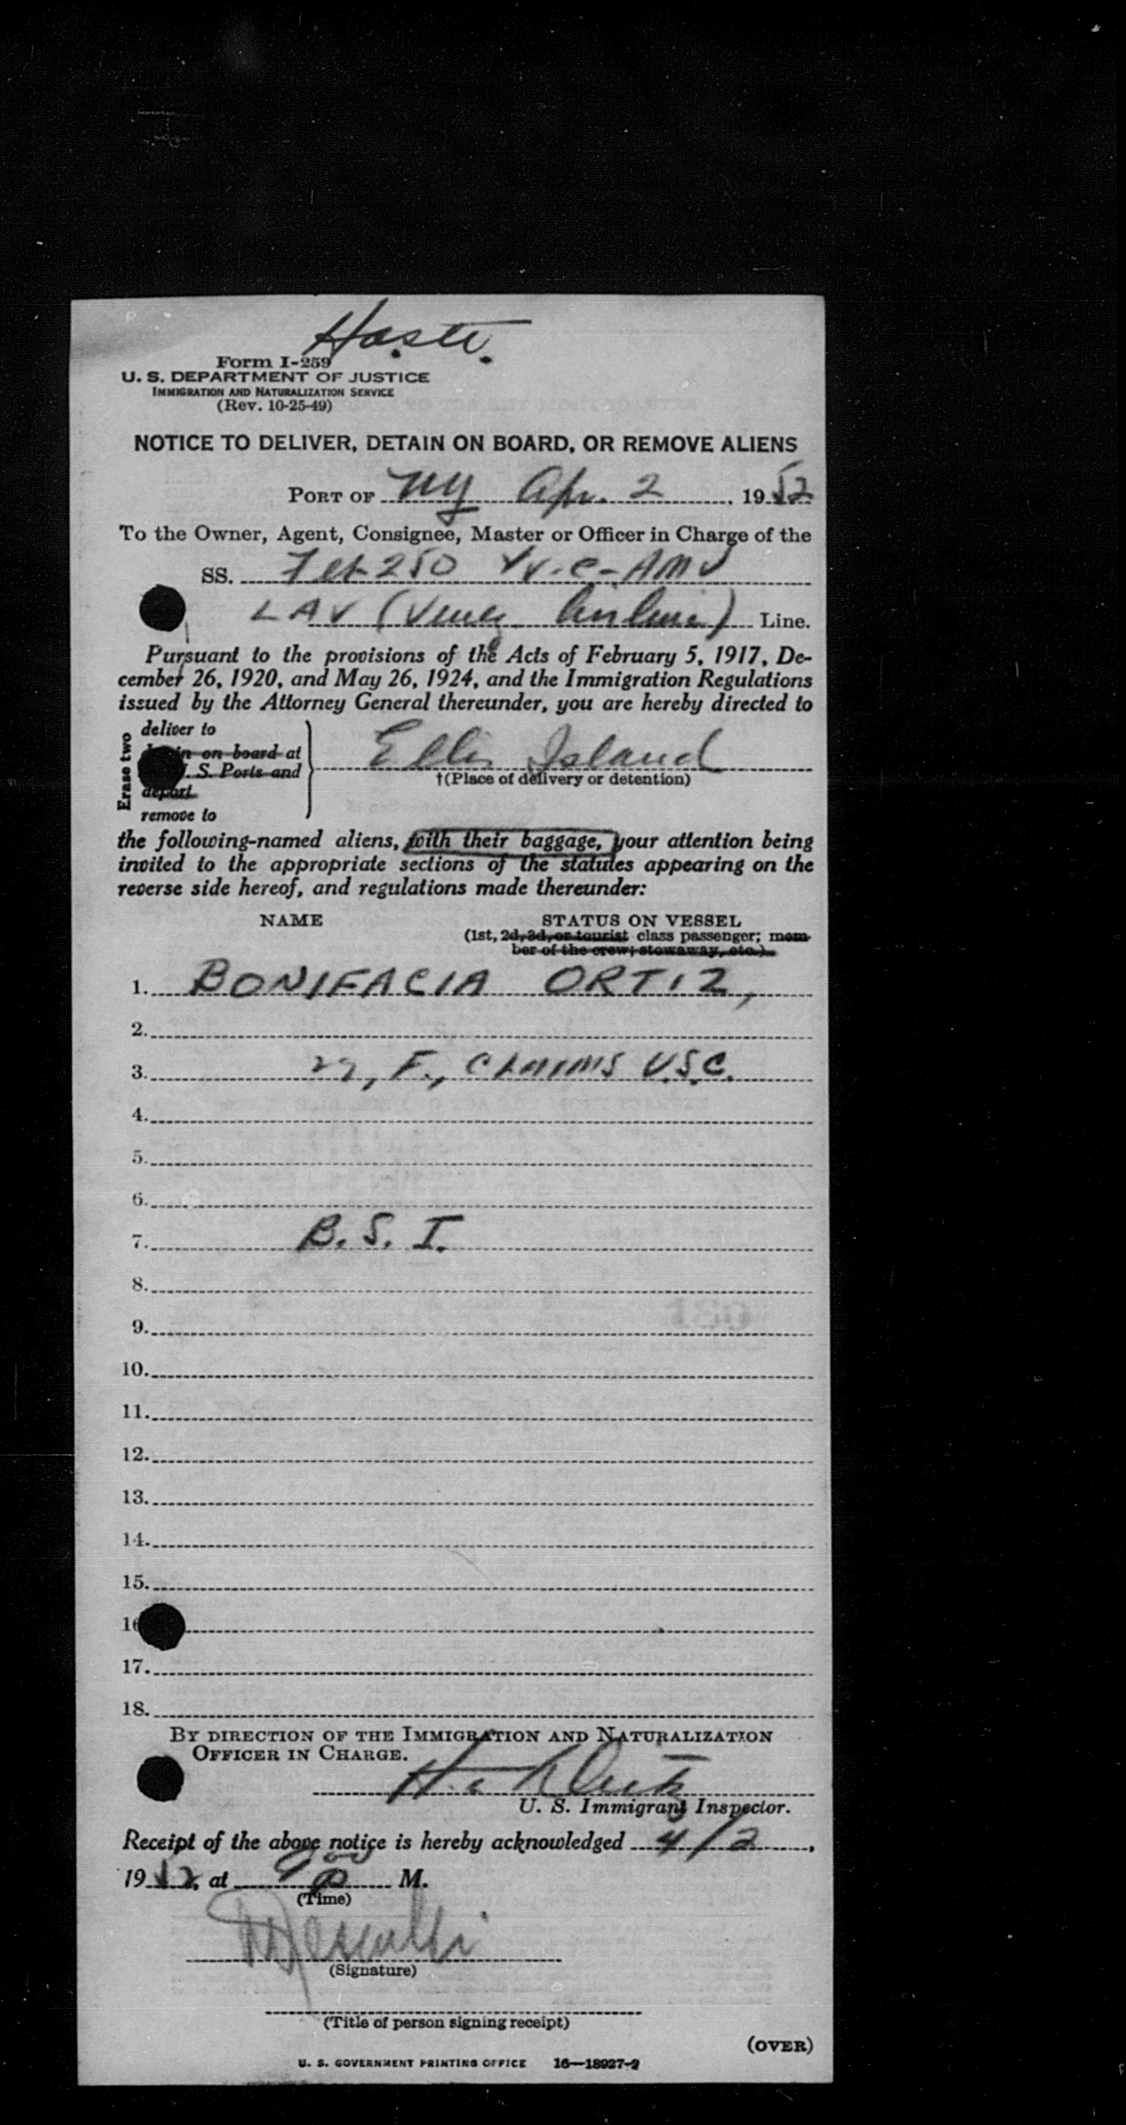 Haste.
Form I-259
U. S. DEPARTMENT OF JUSTICE
IMMIGRATION AND NATURALIZATION SERVICE
(Rev. 10-25-49)
NOTICE TO DELIVER, DETAIN ON BOARD, OR REMOVE ALIENS
PORT OF NY Apr. 2, 1952
To the Owner, Agent, Consignee, Master or Officer in Charge of the
SS. Flt 250 YV-C-AMV
LAV (Venez. Airline) Line.
Pursuant to the provisions of the Acts of February 5, 1917, De-
cember 26, 1920, and May 26, 1924, and the Immigration Regulations
issued by the Attorney General thereunder, you are hereby directed to
Erase two
deliver to
in on board at
. S. Ports and
depart
remove to
Ellis Island
†(Place of delivery or detention)
the following-named aliens, with their baggage, your attention being
invited to the appropriate sections of the statutes appearing on the
reverse side hereof, and regulations made thereunder:
NAME STATUS ON VESSEL
(1st, 2d, 3d, or tourist class passenger; mem-
ber of the crew; stowaway, etc.)
1. BONIFACIA ORTIZ,
2.
3. 27, F., CLAIMS U.S.C.
4.
5.
6.
7. B. S. I.
8.
9.
10.
11.
12.
13.
14.
15.
16
17.
18.
BY DIRECTION OF THE IMMIGRATION AND NATURALIZATION
OFFICER IN CHARGE.
U. S. Immigrant Inspector.
Receipt of the above notice is hereby acknowledged 4/2,
1952, at 9 00 p M.
(Time)
(Signature)
(Title of person signing receipt)
(OVER)
U. S. GOVERNMENT PRINTING OFFICE 16—18927-2